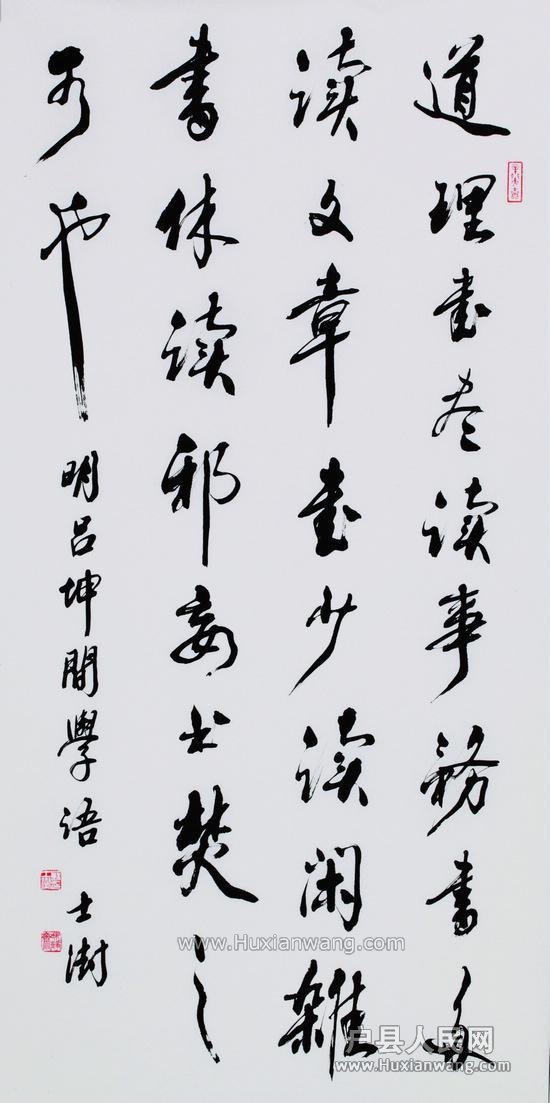 道理书尽读事務書多
读文章书少读闲雜
書休读邪妄书焚之
可也
明吕坤間學語 士澍
www.Huxianwang.com
户县人民网
www.Huxianwang.com